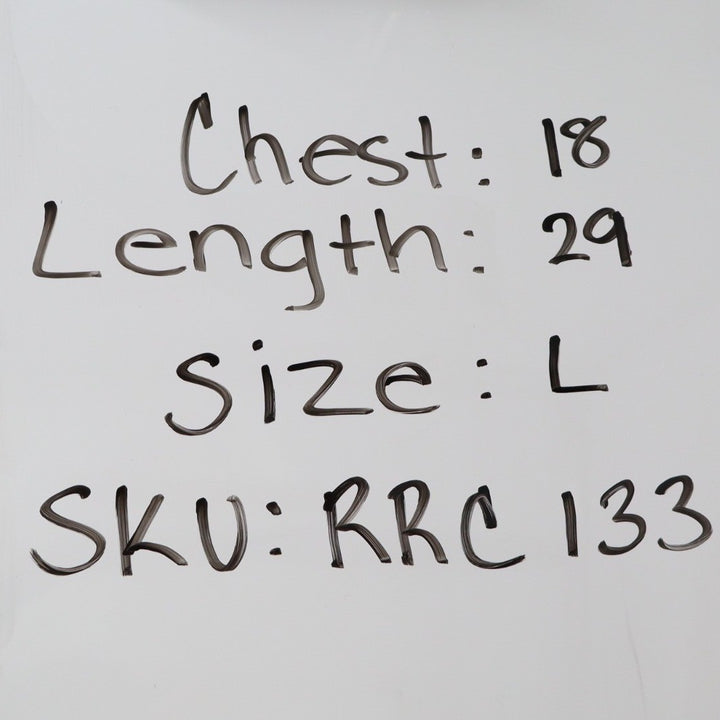 Chest: 18
Length: 29
Size: L
SKU: RRC 133